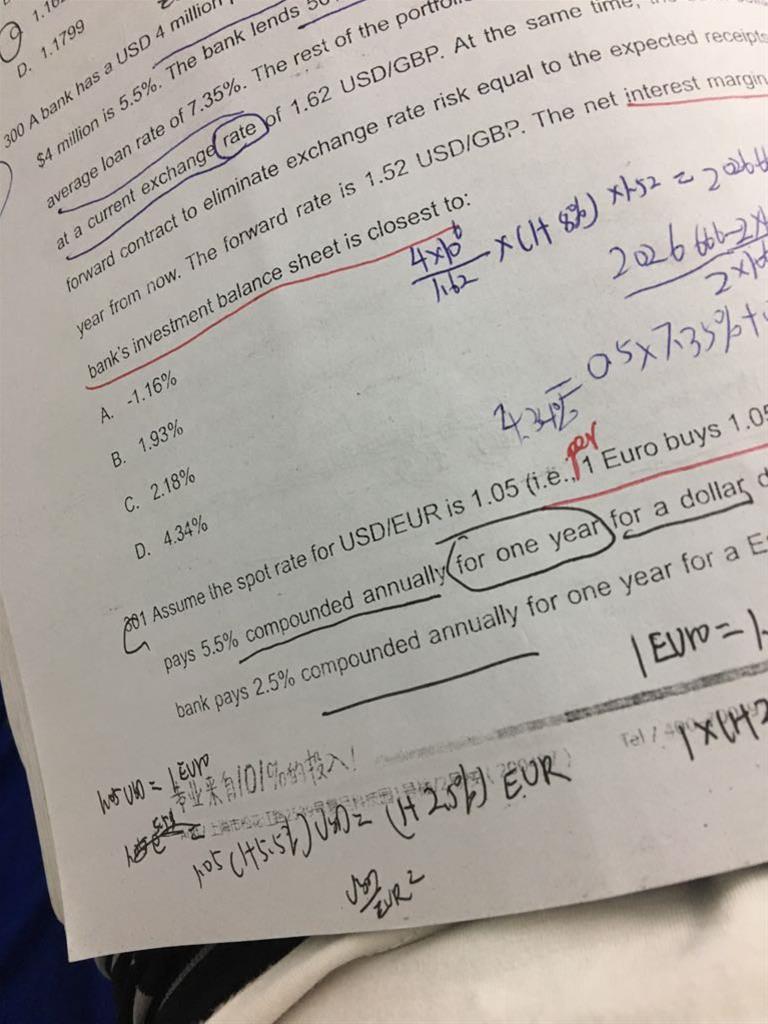 D. 1.1799
300 A bank has a USD 4 million
$4 million is 5.5%. The bank lends
average loan rate of 7.35%. The rest of the
at a current exchange rate of 1.62 USD/GBP. At the same time,
forward contract to eliminate exchange rate risk equal to the expected receipts
year from now. The forward rate is 1.52 USD/GBP. The net interest margin
bank's investment balance sheet is closest to:
4×10⁶/1.62 × (1+8%) ×1.52 =
A. -1.16%
B. 1.93%
C. 2.18%
D. 4.34%
= 0.5×7.35%+
4.34%
per
Assume the spot rate for USD/EUR is 1.05 (i.e., 1 Euro buys 1.05
pays 5.5% compounded annually for one year for a dollar,
bank pays 2.5% compounded annually for one year for a
1 EURO = 1.
Tel /
1×(1+2
1.05 USD = 1 EURO
专业来自101%的投入!
1.05 (1+5.5%) USD = (1+2.5%) EUR
USD/EUR =